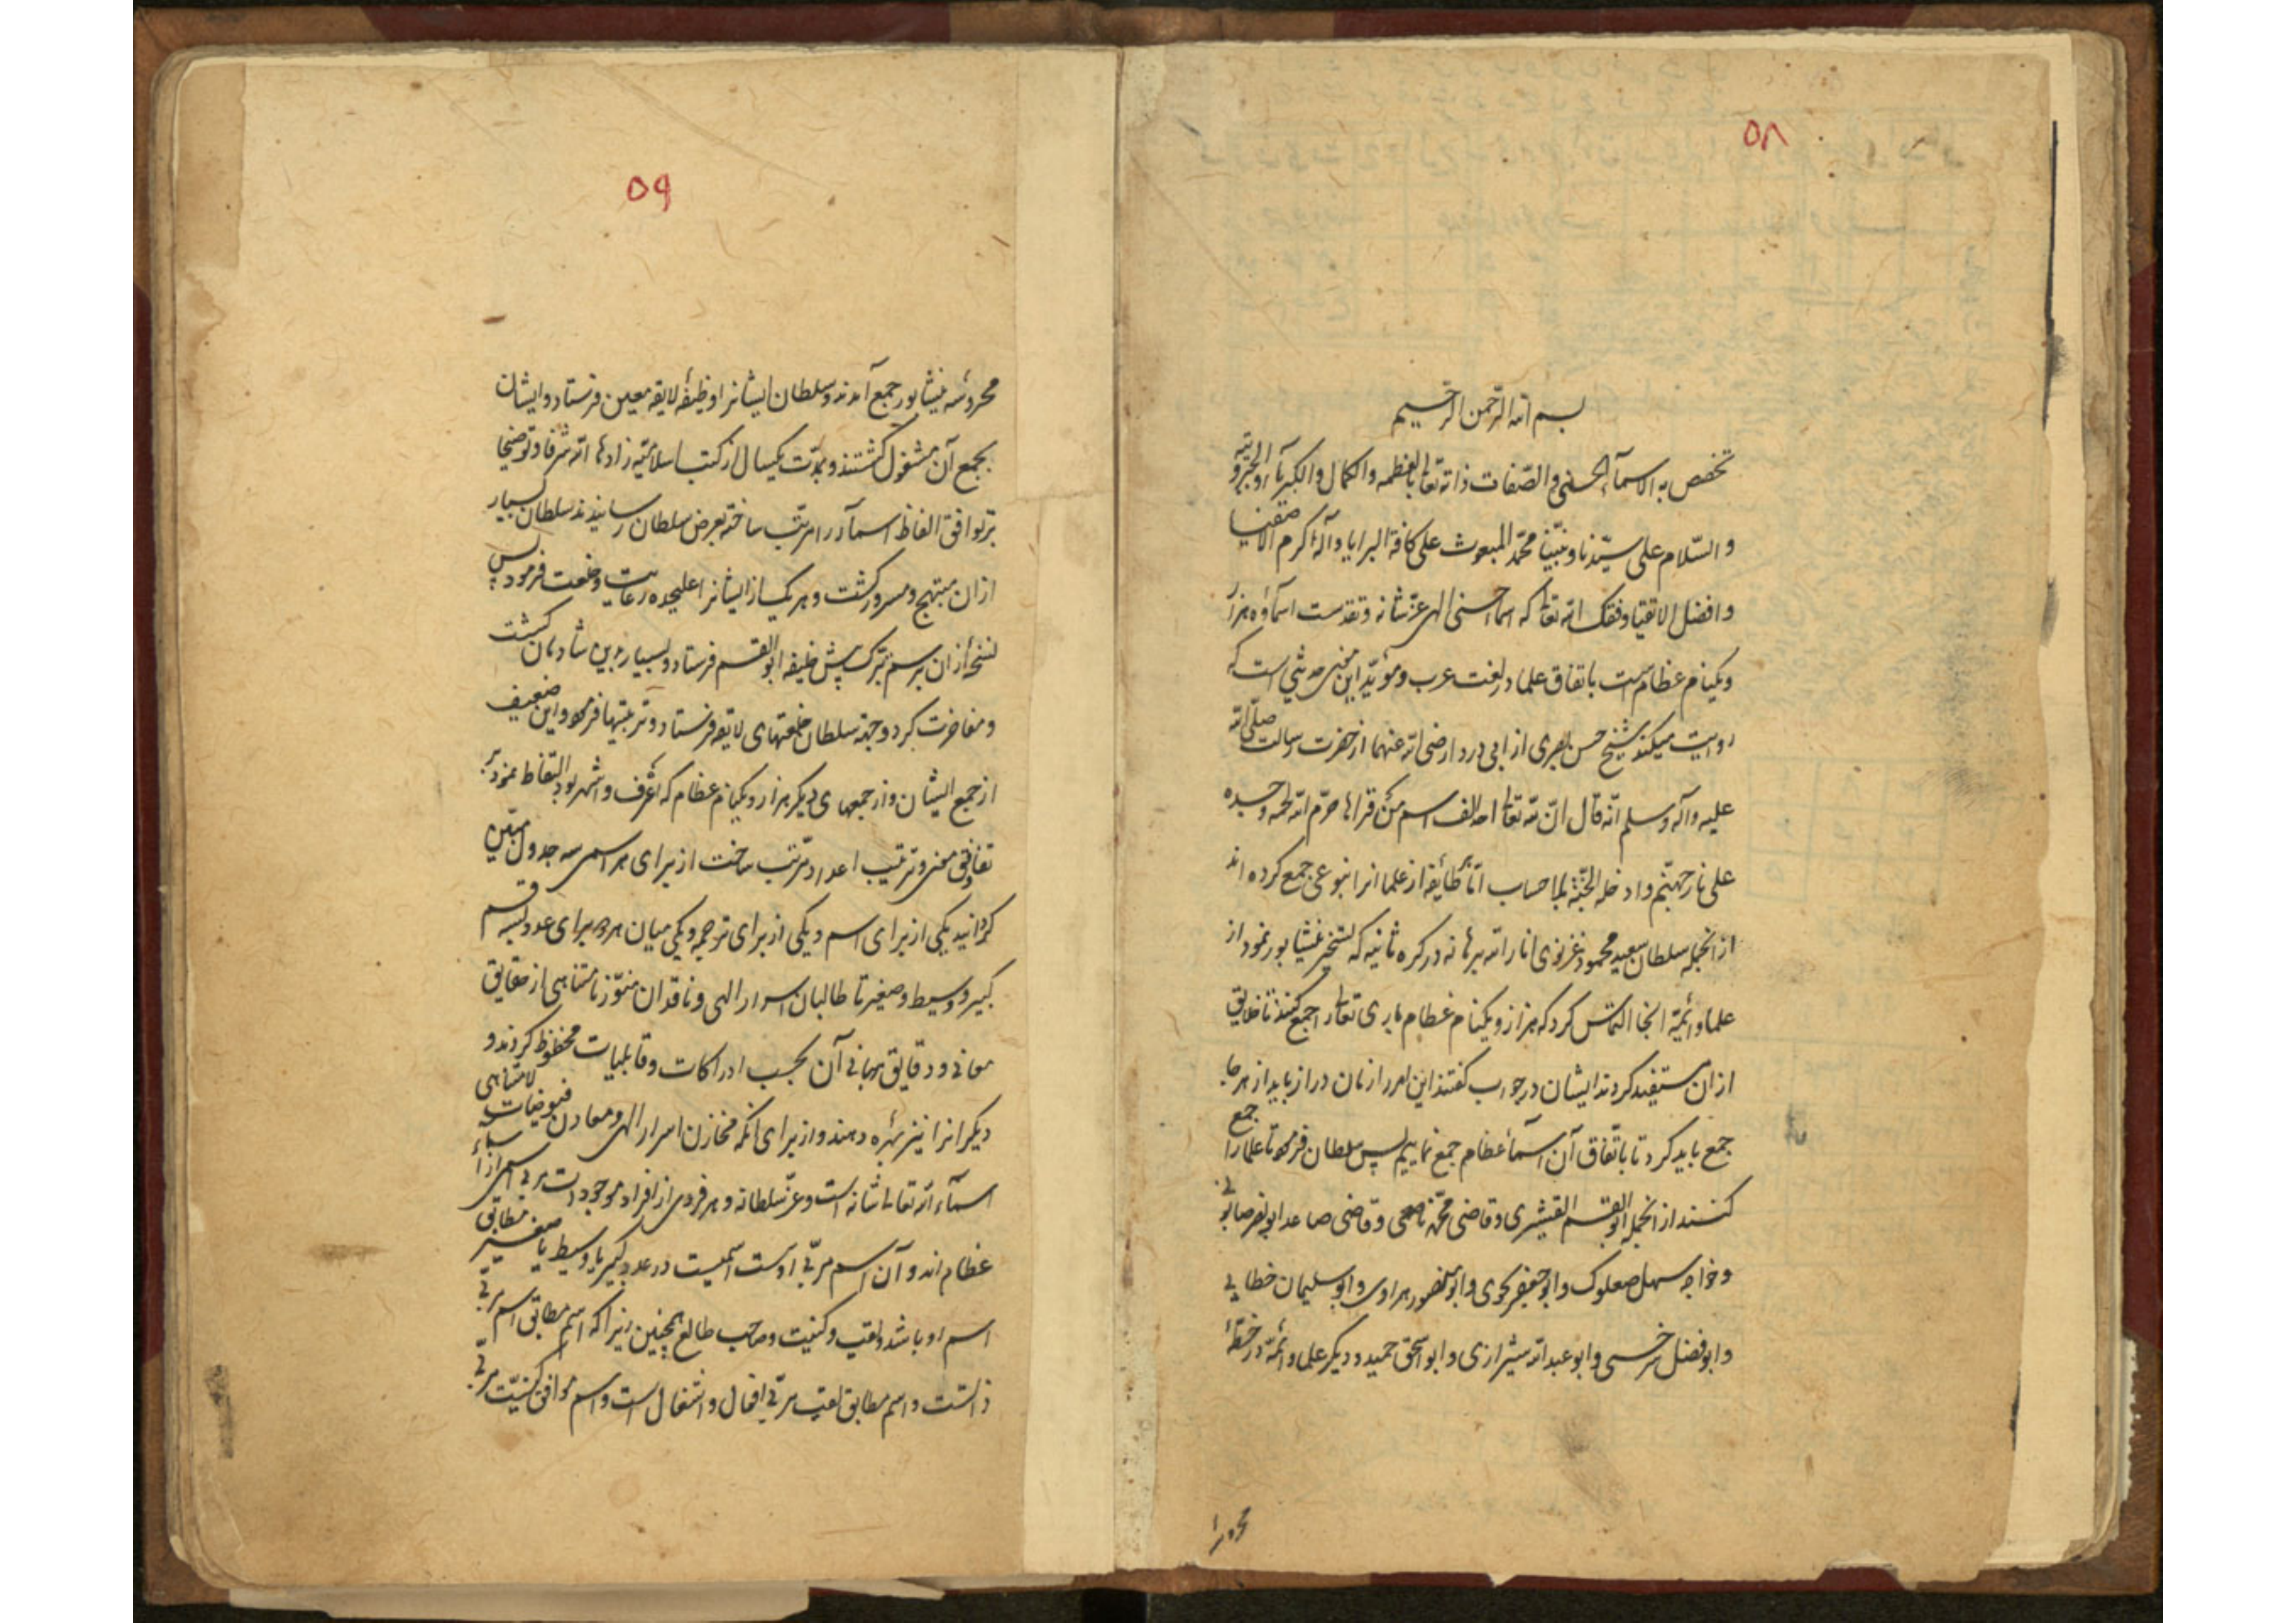 ۵۸
بسم الله الرحمن الرحیم
تخصص به الاسمآء الحسنی والصّفات ذاته تعالی بالعظمه والکمال والکبریآء والجبروتیه
والسّلام علی سیّدنا ونبیّنا محمّد المبعوث علی کافة البرایا وآله اکرم الاصفیا
وافضل الاتقیا وفقک الله تعالی که اسماحسنی الهی عزّ شانه وتقدست اسمآؤه هزار
ویکنام عظام است باتفاق علما در لغت عرب ومؤیّد این معنی حدیثی است که
روایت میکند شیخ حسن بصری از ابی دردا رضی الله عنهما از حضرت رسالت صلّی الله
علیه وآله وسلم انّه قال انّ لله تعالی الف اسم من قراها حرّم الله لحمه وجسده
علی نار جهنّم وادخله الجنّة بلا حساب امّا طائفه از علما انرا بنوعی جمع کرده اند
از انجمله سلطان سعید محمود غزنوی انار الله برهانه در کره ثانیه که تسخیر نیشابور نمود از
علما وائمّه انجا التماس کرد که هزار ویکنام عظام باری تعالی را جمع کنند تا خلایق
ازان مستفید کردند ایشان در جواب کفتند این امر را زمان دراز باید از هر جا
جمع باید کرد تا باتّفاق آن اسمآء عظام جمع نماییم پس سلطان فرمود تا علما را جمع
کنند از انجمله ابو القسم القشیری وقاضی محمّد ناصحی وقاضی صاعد ابو نصر صابونی
وخواجه سهل صعلوک وابو جعفر نحوی وابو منصور هراوی وابو سلیمان خطابی
وابو فضل سرخسی وابو عبد الله شیرازی وابو اسحق حمید ودیکر علما وائمّه در خطّه
محروسه
۵۹
محروسه نیشابور جمع آمدند وسلطان ایشانرا وظیفه لایقه معین فرستاد وایشان
بجمع آن مشغول کشتند وبمدّت یکسال از کتب اسلامیّه زادها الله شرفا وتوضیحا
بتوافق الفاظ اسمآء را مرتّب ساخته بعرض سلطان رسانیدند سلطان بسیار
ازان مبتهج ومسرور کشت وهر یک از ایشانرا علیحده رعایت وخلعت فرمود پس
نسخه ازان برسم تبرّک پیش خلیفه ابو القسم فرستاد وبسیار بدین شادمان کشت
ومفاخرت کرد وجهة سلطان خلعتهای لایقه فرستاد وتربیتها فرمود واین ضعیف
از جمع ایشان واز جمعهای دیکر هزار ویکنام عظام که اعرف واشهر بود التقاط نمود بر
توافق معنی وترتیب اعداد مرتّب ساخت از برای هر اسمی سه جدول مبیّن
کردانید یکی از برای اسم ویکی از برای ترجمه ویکی میان هر دو برای عدد سه قسم
کبیر و وسیط وصغیر تا طالبان اسرار الهی وناقدان نامتناهی از حقایق
معانی ودقایق مبانی آن بحسب ادراکات وقابلیات محظوظ کردند و
دیکرانرا نیز بهره دهند واز برای آنکه مخازن اسرار الهی ومعادن فیوضات لامتناهی
اسمآء الله تعالی شانه است وعزّ سلطانه وهر فردی از افراد موجودات مربی اسمی از اسمآء
عظام اند وآن اسم مربّی اوست اسمیست در عدد کبیر یا وسیط یا صغیر مطابق
اسم او باشد ولقب وکنیت وصاحب طالع همچنین زیرا که اسم مطابق اسم مربّی
ذاتست واسم مطابق لقب مربّی افعال واشغال است واسم موافق کنیّت مربّی